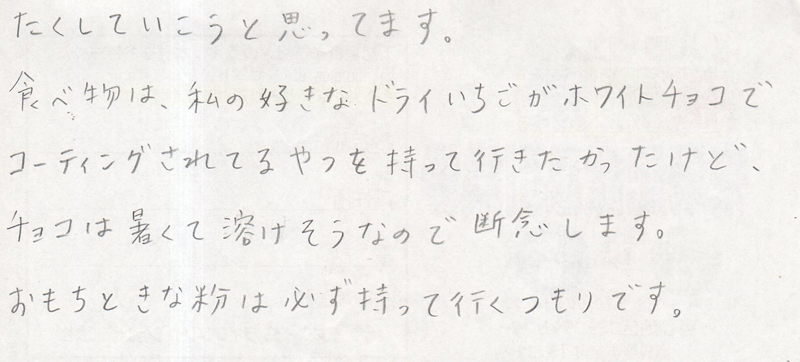 たくしていこうと思ってます。
食べ物は、私の好きなドライいちごがホワイトチョコで
コーティングされてるやつを持って行きたかったけど、
チョコは暑くて溶けそうなので断念します。
おもちときな粉は必ず持って行くつもりです。